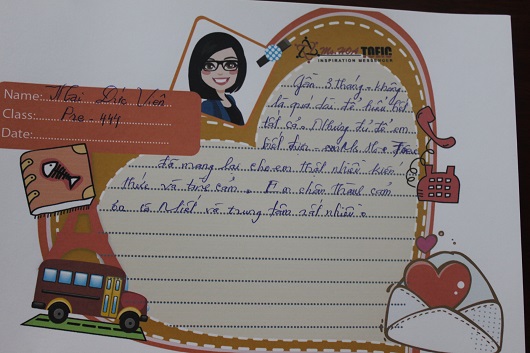 Ms HOA TOEIC
INSPIRATION MESSENGER
Name: Mai Đức Viên
Class: Pre - 444
Date:
Gần 3 tháng không
là quá dài để hiểu hết
tất cả. Nhưng đủ để em
biết được Ms Hoa Toeic
đã mang lại cho em thật nhiều kiến
thức và tình cảm. Em chân thành cảm
và trung tâm rất nhiều.